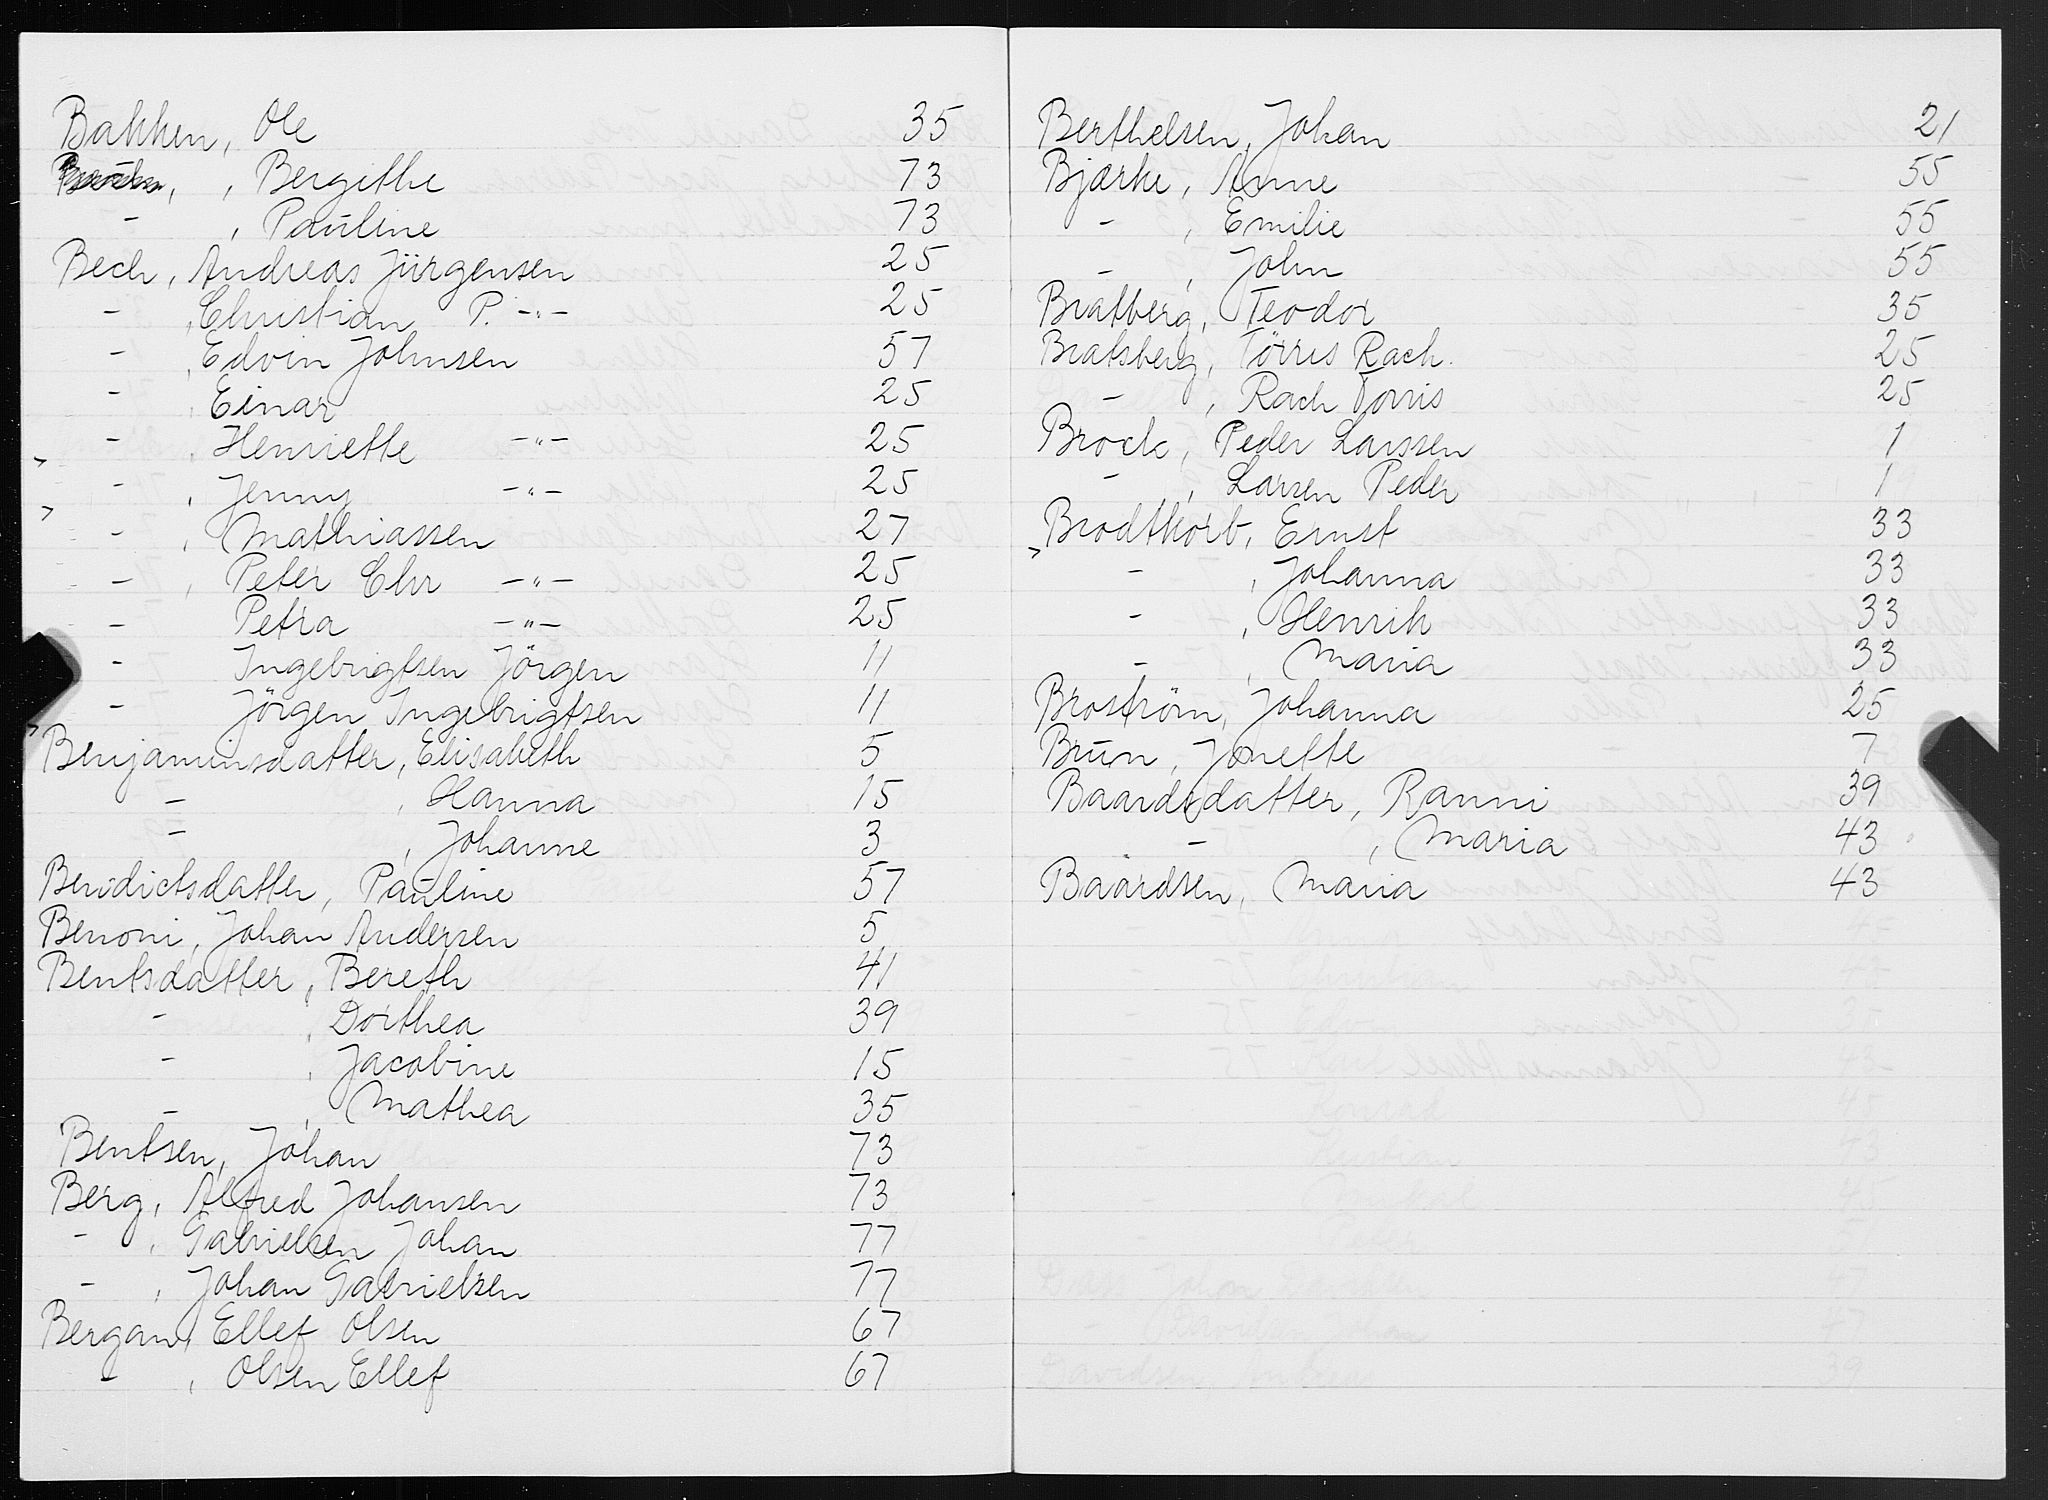 Bakken, Ole 35
, Bergithe 73
- , Pauline 73
Bech, Andreas Jürgensen 25
- , Christian P. -"- 25
- , Edvin Johnsen 57
- , Einar 25
- , Henriette -"- 25
- , Jenny -"- 25
- , Mathiassen 27
- , Peter Chr -"- 25
- Petra -"- 25
- Ingebrigtsen Jörgen 11
- Jörgen Ingebrigtsen 11
Benjaminsdatter, Elisabeth 5
- , Hanna 15
- , Johanne 3
Benidictsdatter, Pauline 57
Benoni, Johan Andersen 5
Bentsdatter, Bereth 41
- , Dorthea 39
- , Jacobine 15
- , Mathea 35
Bentsen, Johan 73
Berg, Alfred Johansen 73
- , Gabrielsen Johan 77
- , Johan Gabrielsen 77
Bergan, Ellef Olsen 67
- , Olsen Ellef 67
Berthelsen, Johan 21
Bjærke, Anne 55
- , Emilie 55
- , John 55
Bratberg, Teodor 35
Bratsberg, Törres Rach. 25
- , Rach Torris 25
Brock, Peder Larssen 1
- , Larsen Peder 1
Brodtkorb, Ernst 33
- , Johanna 33
- , Henrik 33
- , Maria 33
Broström, Johanna 25
Brun, Jonette 7
Baardsdatter, Ranni 39
- , Maria 43
Baardsen, Maria 43